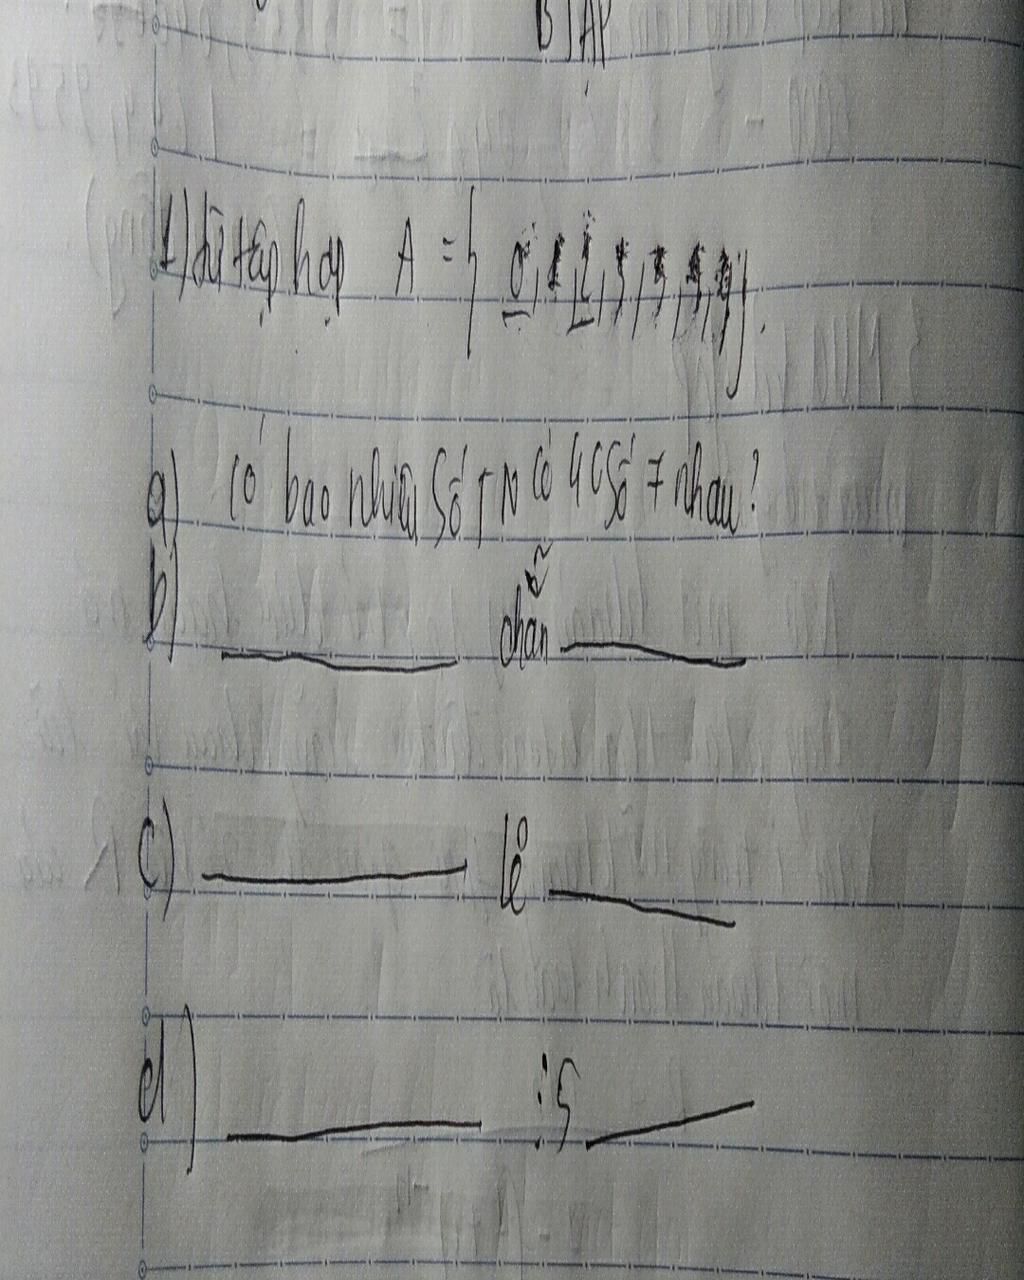 B TẬP
1) từ tập hợp A = { 0, 1, 2, 3, 7, 8, 9 }.
a) Có bao nhiêu số TN có 4 c số ≠ nhau?
b) ___ chẵn ___
c) ___ lẻ ___
d) ___ ⋮ 5 ___